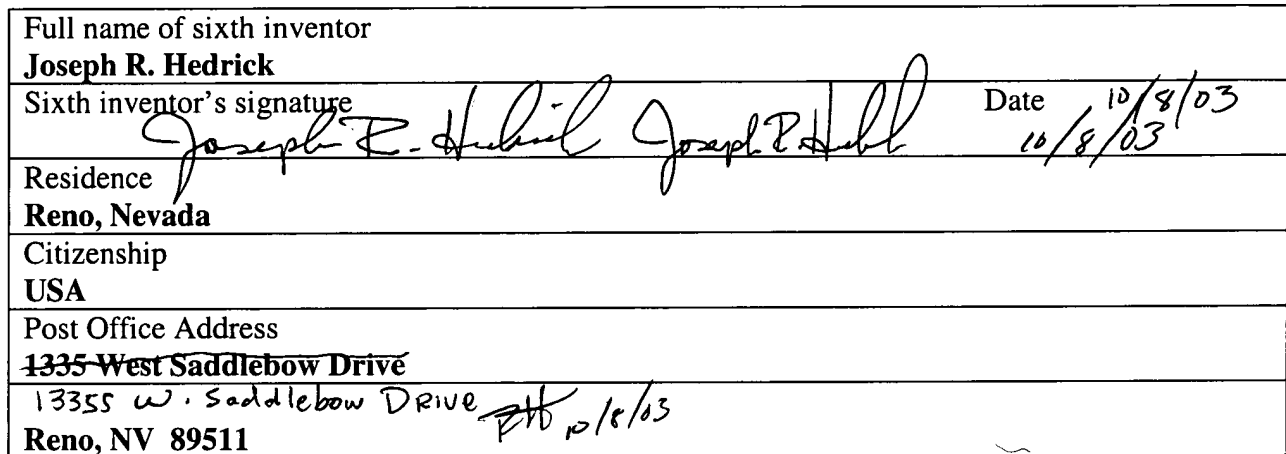 Full name of sixth inventor
Joseph R. Hedrick
Sixth inventor's signature Date 10/8/03
Joseph R. Joseph R 10/8/03
Residence
Reno, Nevada
Citizenship
USA
Post Office Address
1335 West Saddlebow Drive
13355 W. Saddlebow DRive 10/8/03
Reno, NV 89511